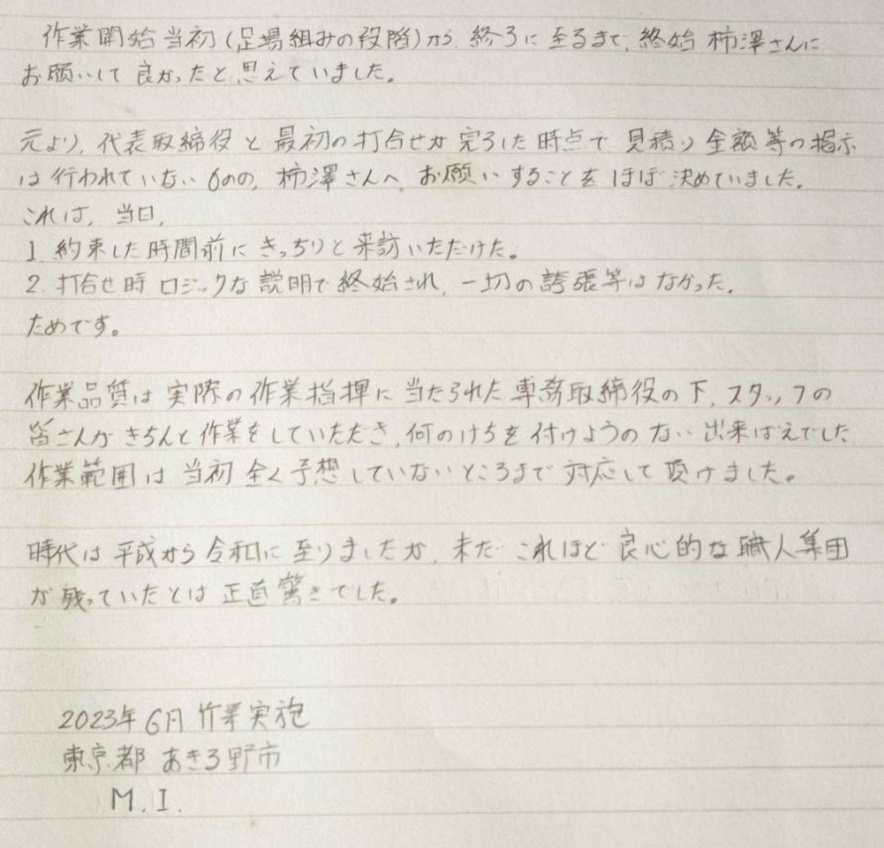 作業開始当初(足場組みの段階)から終了に至るまで、終始柿澤さんに
お願いして良かったと思えていました。
元より、代表取締役と最初の打合せが完了した時点で見積り金額等の提示
は行われていないものの、柿澤さんへお願いすることをほぼ決めていました。
これは、当日、
1. 約束した時間前にきっちりと来訪いただけた。
2. 打合せ時ロジックな説明で終始され、一切の誇張等はなかった。
ためです。
作業品質は実際の作業指揮に当たられた専務取締役の下、スタッフの
皆さんがきちんと作業をしていただき、何のけちを付けようのない出来ばえでした
作業範囲は当初全く予想していないところまで対応して頂けました。
時代は平成から令和に至りましたが、まだこれほど良心的な職人集団
が残っていたとは正直驚きでした。
2023年6月作業実施
東京都あきる野市
M.I.